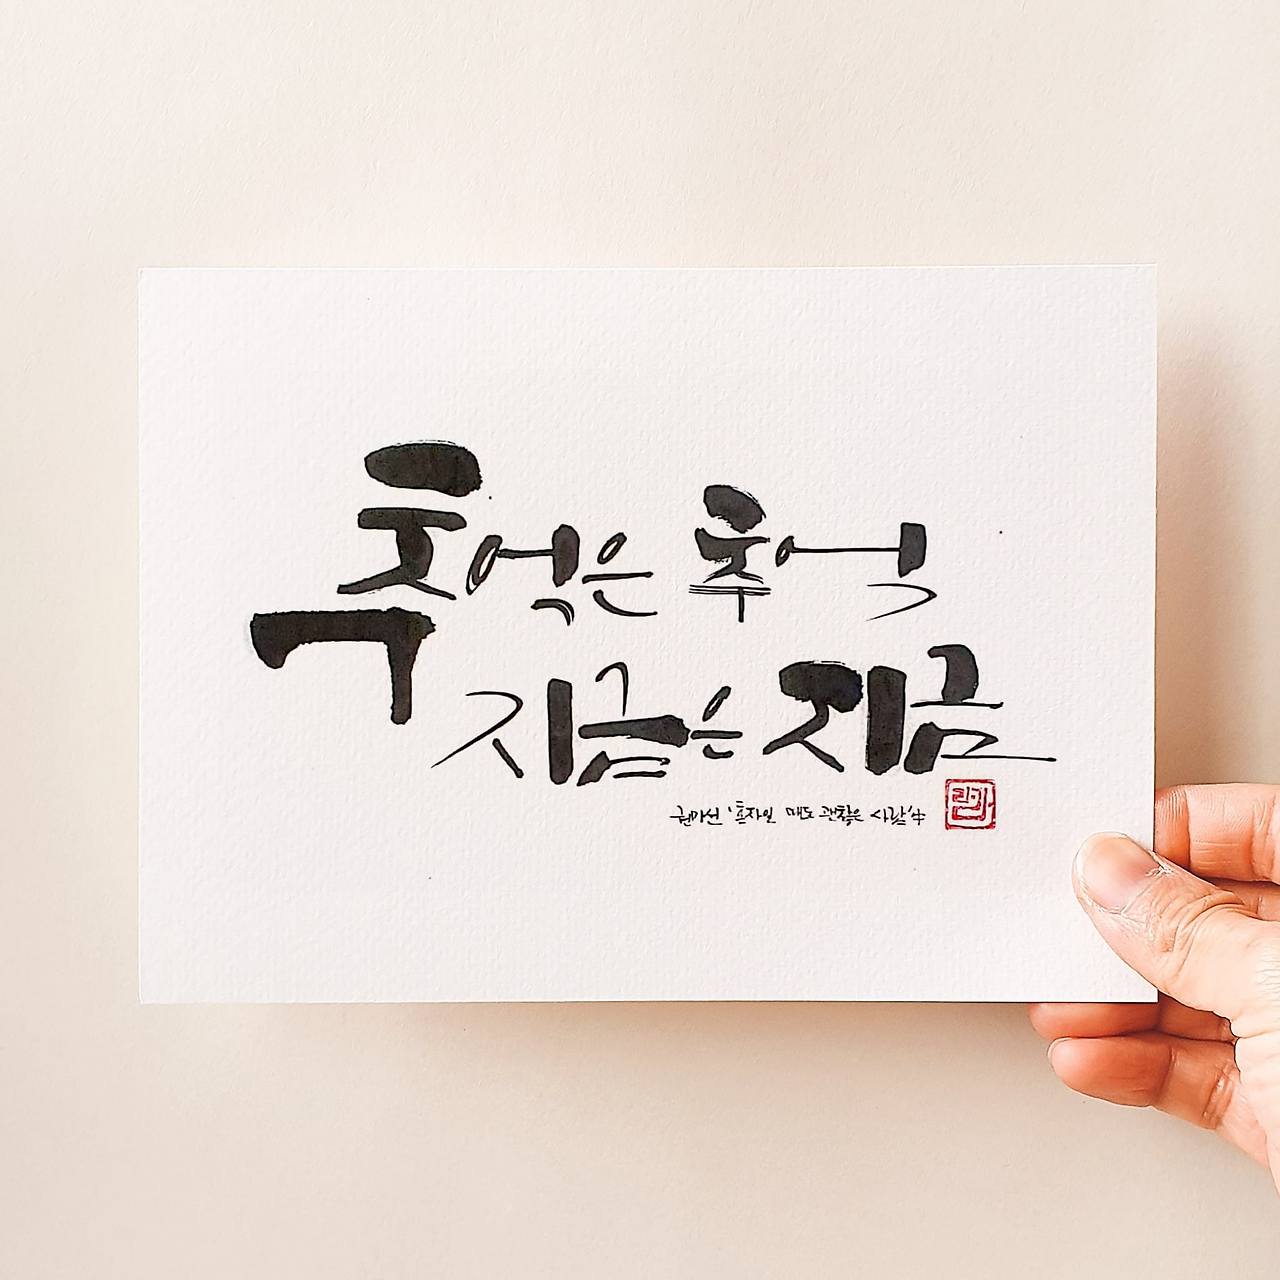 추억은 추억
지금은 지금
권미선 '혼자일 때도 괜찮은 사람' 中